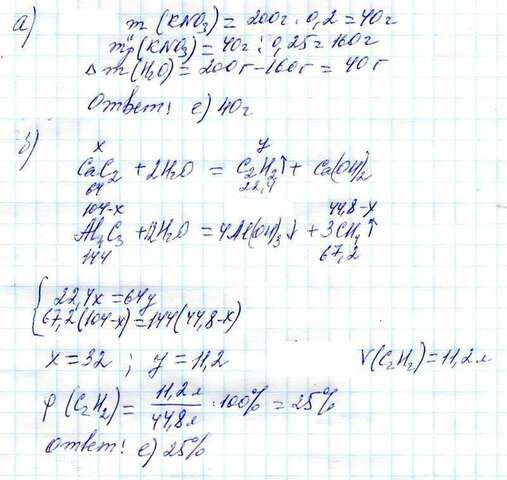 а) m (KNO₃) = 200г · 0,2 = 40г
m р (KNO₃) = 40г : 0,25 = 160г
Δ m (H₂O) = 200г - 160г = 40г
Ответ: с) 40г
б) x y
CaC₂ + 2H₂O = C₂H₂↑ + Ca(OH)₂
64 22,4
104-x 44,8-x
Al₄C₃ + 12H₂O = 4Al(OH)₃↓ + 3CH₄↑
144 67,2
{ 22,4x = 64y
67,2(104-x) = 144(44,8-x)
x = 32 ; y = 11,2 V(C₂H₂) = 11,2 л
φ (C₂H₂) = 11,2 л / 44,8 л · 100% = 25%
Ответ: с) 25%